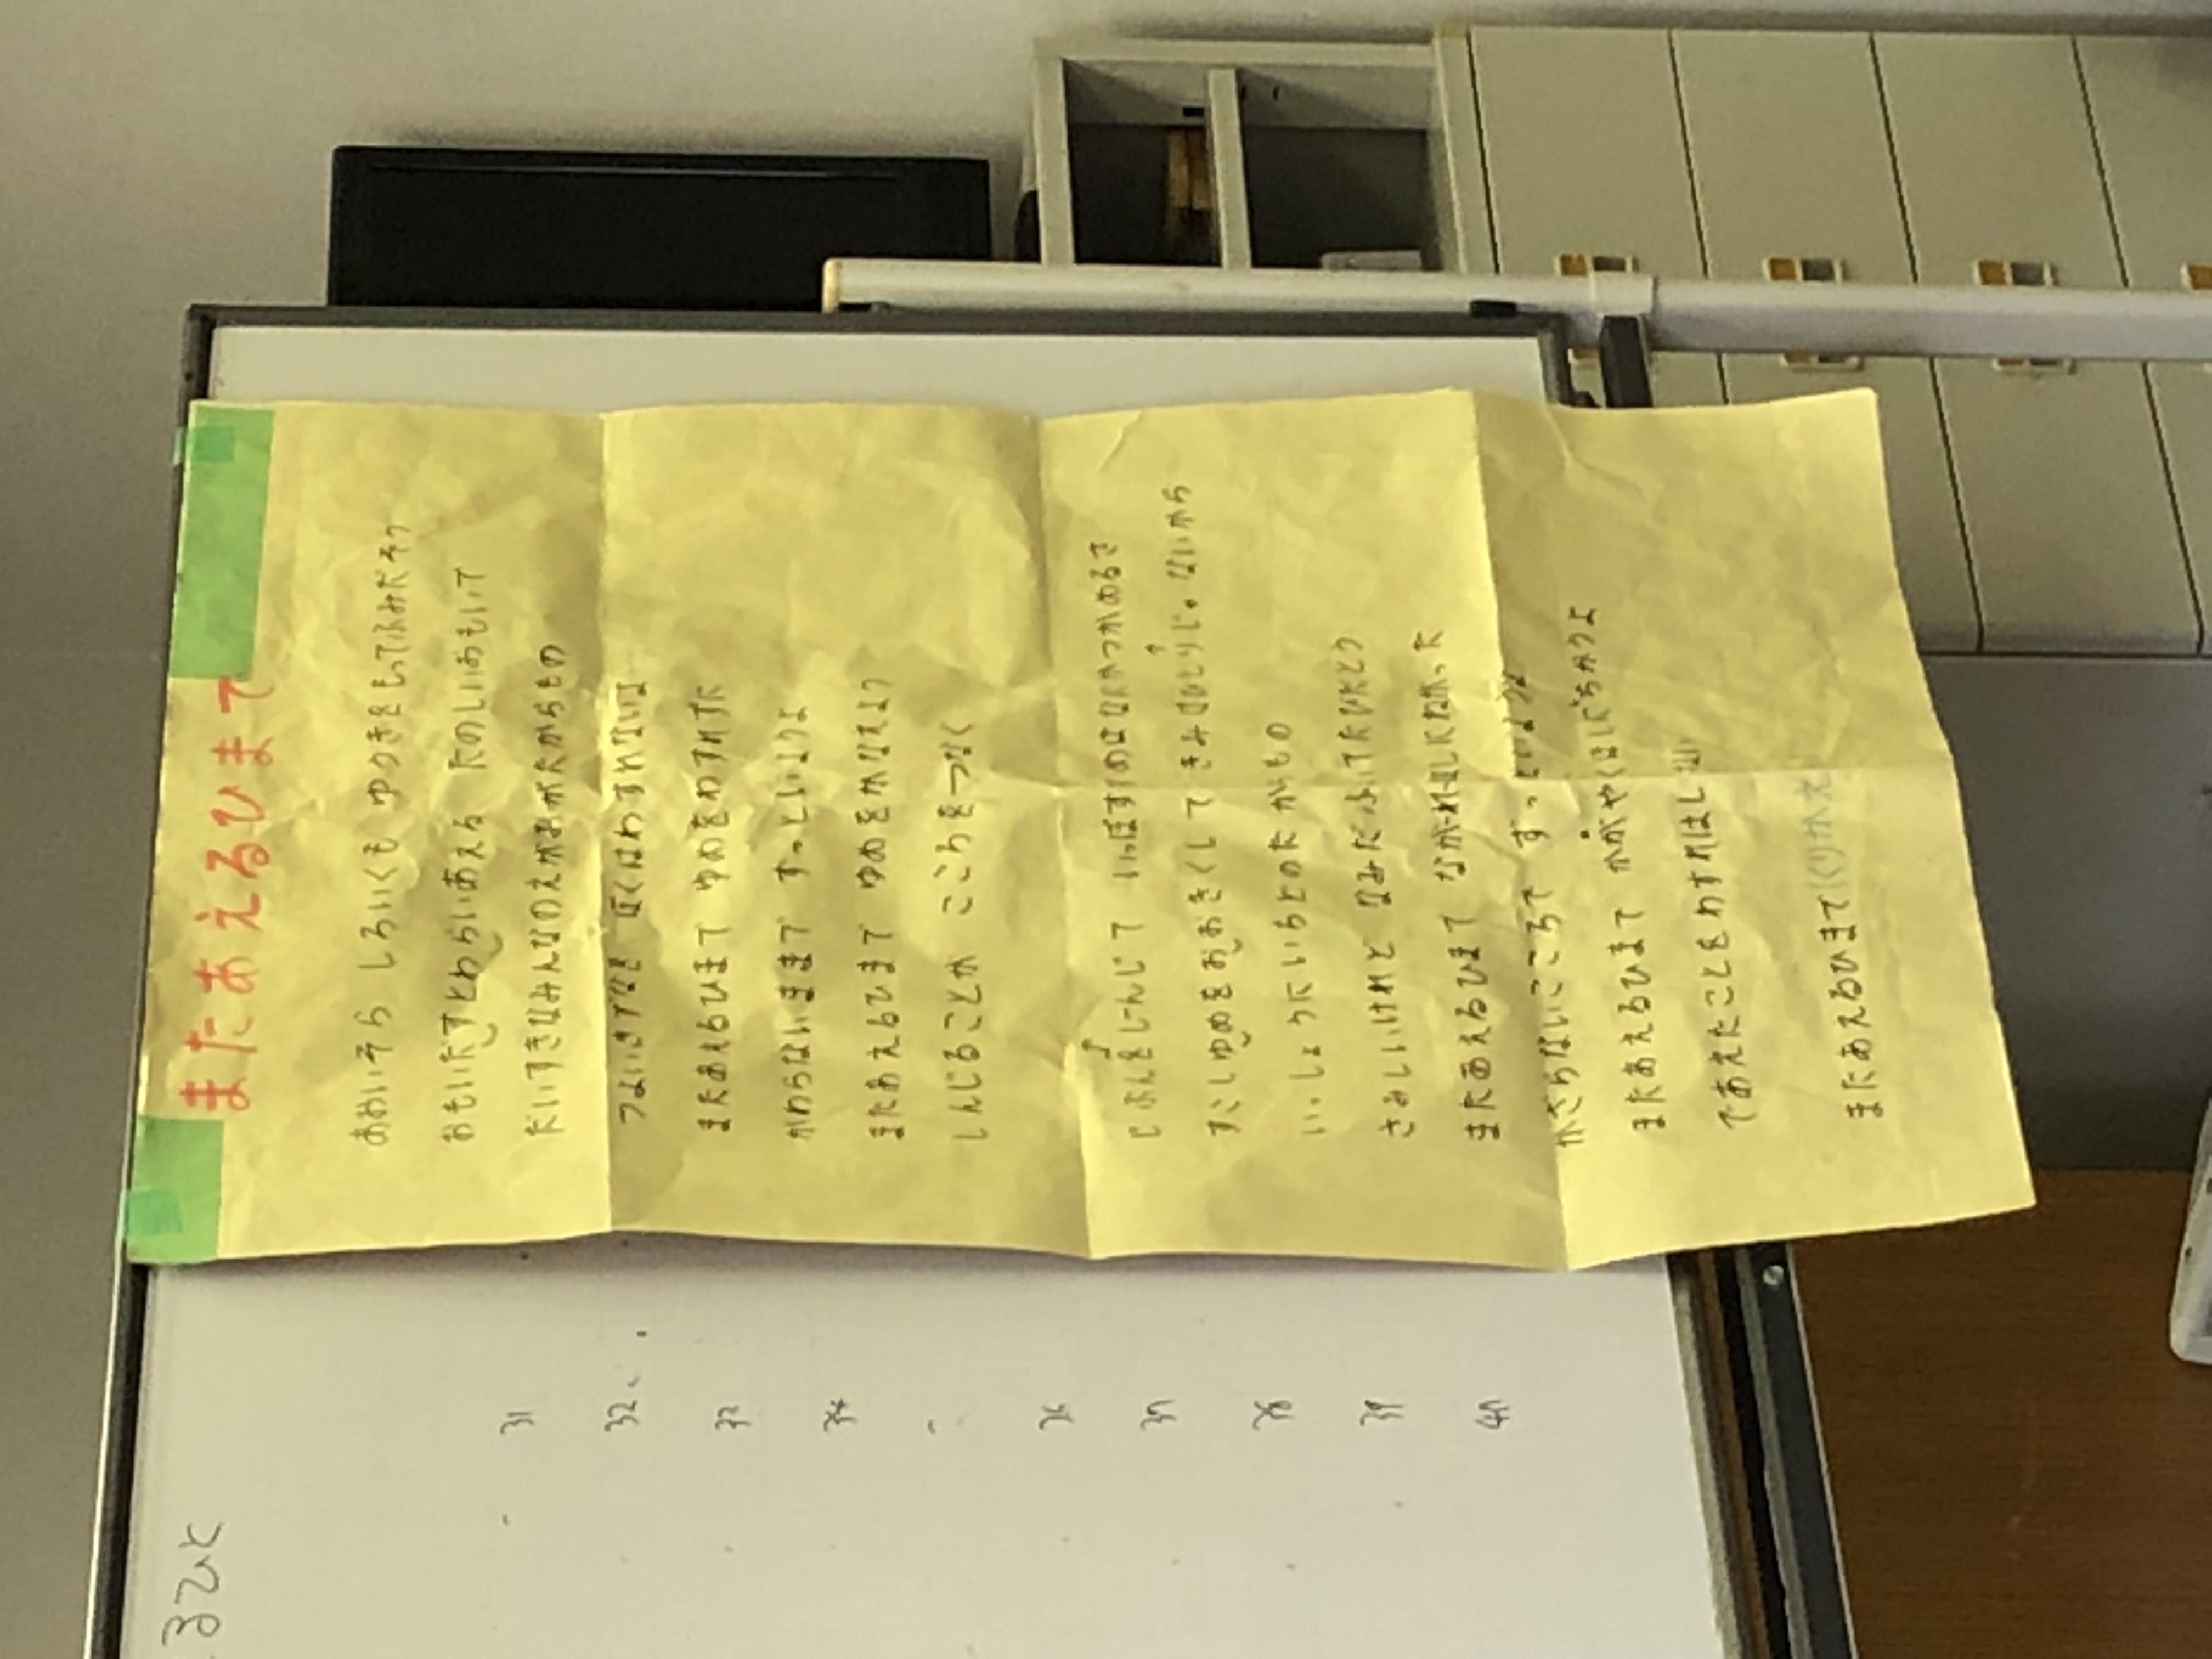 またあえるひまで
あおいそら しろいくも ゆうきをもってふみだそう
おもいだすとわらいあえる たのしいおもいで
だいすきなみんなのえがおがたからもの
つよいきずなを ぼくはわすれないよ
またあえるひまで ゆめをわすれずに
かわらないままで ずっといようよ
またあえるひまで ゆめをかなえよう
しんじることが こころをつなぐ
じぶんをしんじて いっぽすすめばなにかつかめるさ
すこしゆめをおおきくして きみはひとりじゃないから
いっしょうにいちどのたからもの
さみしいけれど なみだふいてたびだとう
またあえるひまで ながれぼしにねがった
かざらないこころで ずっといようよ
またあえるひまで かがやくほしにちかうよ
であえたことをわすれはしない
またあえるひまで (くりかえし)
るひと
31
32
33
34
36
37
38
39
40